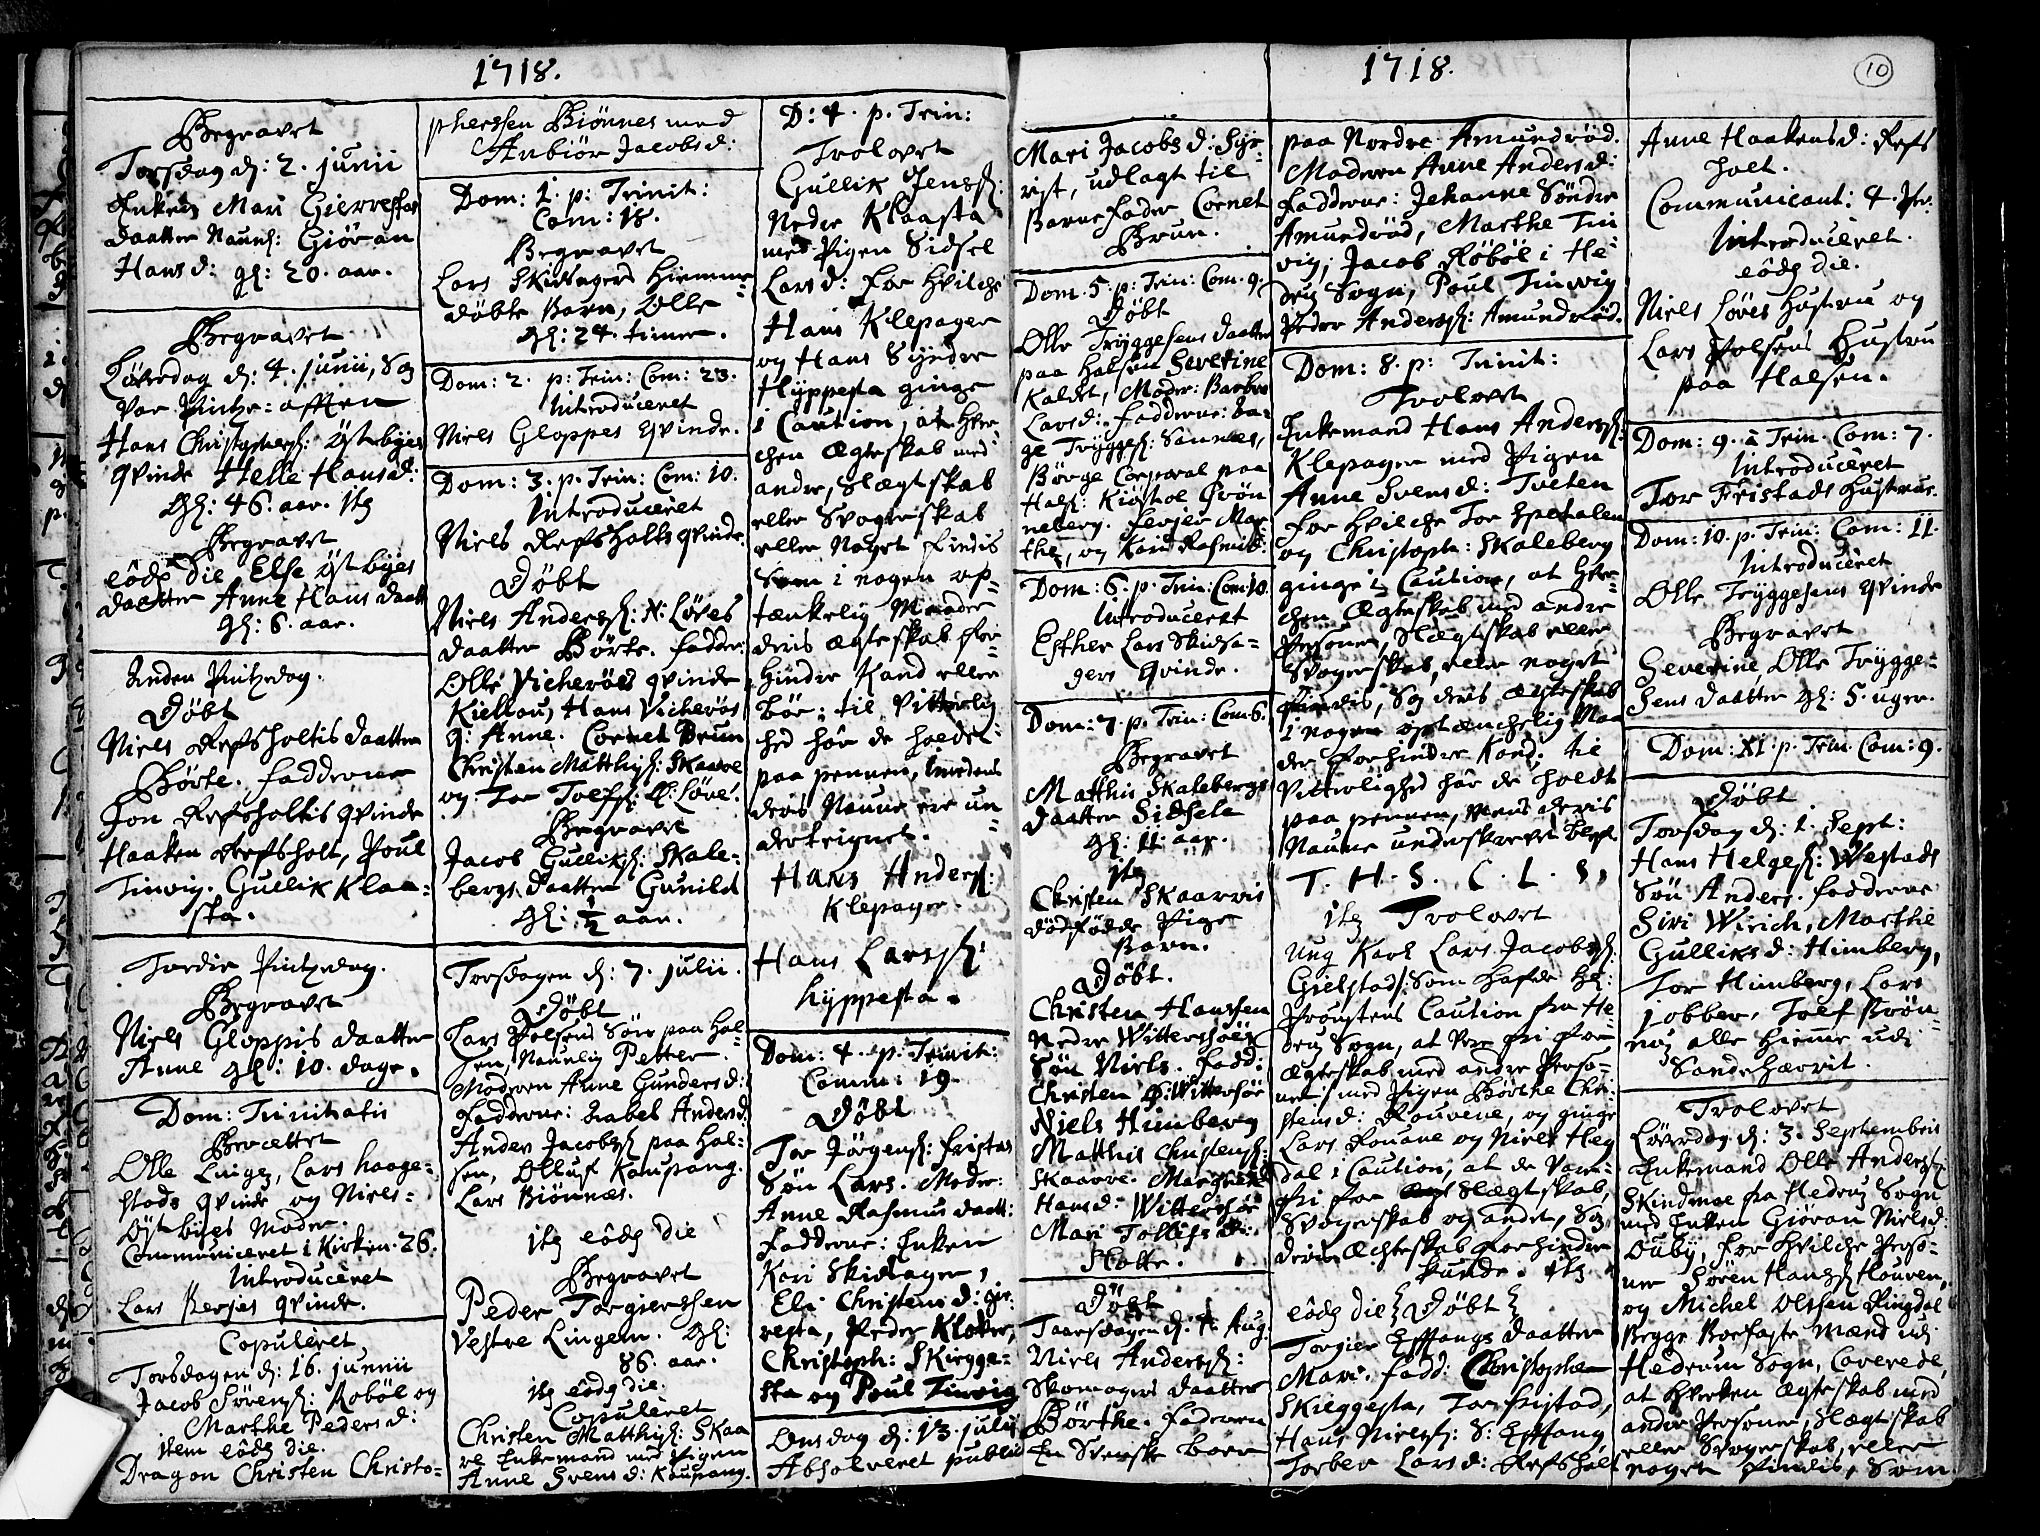 1718.
Begravet
Torsdag d: 2. junii
Enken Mari Gierrestas
daatter Naunl: Giöran
Hansd: gl: 20. aar.
Begravet
Löverdag d: 4. junii, Sog
var Pintze-afften
Hans Christophersl: Östbyes
qvinde Helle Hansd:
Gl: 46. aar. Itg
Begravet
eodg die Else Östbyes
daatter Anne Hans daatt
gl: 6. aar.
Anden Pintzedag.
Döbt
Niels Refsholtis daatter
Börte. fadderne
Jon Refsholtis qvinde
Haaken Refsholt, Poul
Tinvig. Gullik Klaa-
sta.
Tredie Pintzedag.
Begravet
Niels Gloppis daatter
Anne gl: 10. dage.
Dom: Trinitatis
Berættet
Olle Linge, Lars Haage-
stads qvinde og Niels
Östbyes Moder.
Communiceret i Kirken 26.
Introduceret
Lars Berjes qvinde.
Copuleret
Torsdagen d: 16. junii
Jacob Sörensl: Roböl og
Marthe Pedersd:
item eodg die.
Dragon Christen Christo-
phersen Biönnes med
Anbiör Jacobsd:
Dom: 1. p: Trinit:
Com: 18.
Begravet
Lars Skisagers hiemme-
döbte Barn, Olle
gl: 24. timer.
Dom: 2. p: Trin: Com: 23.
Introduceret
Niels Gloppes qvinde.
Dom: 3. p. Trin: Com: 10.
Introduceret
Niels Refsholts qvinde.
Döbt
Niels Andersl: N: Löves
daatter Börte. fadder:
Olle Vicheröes qvinde
Kiellou, Hans Vicheröes
q: Anne. Cornet Brun
Christen Matthisl: Skaave
og Tor Toefsl: Löve.
Begravet
Jacob Gulliksl: Skale-
bergs daatter Gunild
gl: ½ aar.
Torsdagen d: 7. julii.
Döbt
Lars Polsens Sön paa Hal-
sen, Naunlig Petter.
Moderen Anne Gundersd:
Fadderne: Isabel Andersd
Anders Jacobsl paa Hal-
sen, Olluf Kaupang.
Lars Biönnes.
Itg eodg die
Begravet
Peder Torgiersen
Vestre Lingem. gl:
86. aar.
Itg eodg die.
Copuleret
Christen Matthisl: Skaa
ve Enkemand med Pigen
Anne Svensd: Kaupang.
D: 4. p. Trin:
Trolovet
Gullik Jensl:
Nedre Klaasta
med Pigen Sidsel
Larsd: for hvilche
Hans Klepager
og Hans Syndre
Hyppesta ginge
i Caution, at hver-
chen Ægteskab med
andre, Slægtskab
eller Svogerskab
eller Noget findis
Som i nogen op-
tænkelig Maader
deris Ægteskab for-
hindre Kand eller
bör; til Vitterlig
hed hör de holdet
paa pennen, imedens
deris Naune ere un-
dertegnet.
Hans Andersl:
Klepager.
Hans Larsl:
hyppesta.
Dom: 4. p. Trinit:
Comm: 19.
Döbt
Tor Jörgensl: fristad
Sön Lars. Moder:
Anne Rasmus daatt:
Fadderne: Enken
Kari Skisager,
Eli Christensd: gie-
resta, Peder Klaster,
Christoph: Skiegge-
sta og Poul Tinvig
Onsdag d: 13. julii
Absolveret publicè
1718.
10
Mari Jacobsd: Syr-
rist, udlagt til
Barnefader Cornet
Brun.
Dom. 5. p: Trin: Com. 9.
Döbt
Olle Tryggesens daatter
paa Halsen Severine
kaldet, Moder: Barbro
Larsd: fadderne: Ba-
ge Tryggesl: Sannes,
Börge Corporal paa
Halsl: Kiöstol Grön
neberg. Ferjer Mar
the, og Kari Rasmusd:
Dom: 6. p. Trin: Com: 10.
Introduceret
Esther Lars Skidsa-
gers qvinde.
Dom: 7. p. Trin: Com 6.
Begravet
Matthis Skalebergs
daatter Sidsele
gl: 11. aar.
Itg
Christen Skaarvis
dödfödde Pige
Barn.
Döbt.
Christen Hanssen
Nedre Wittersöes
Sön Niels. Fadd:
Christen Ö: Wittersöe
Niels Himberg
Matthis Christensl:
Skaarve. Margrete
Hansd: Wittersöe
Mari Tollefsd:
Holte.
Döbt
Taarsdagen d: 4. Aug.
Niels Andersl:
Skomagers daatter
Börthe. Faderen
En Svenske boer
paa Nordre Amundröd.
Moderen Anne Andersd:
Fadderne: Johanne Söndre
Amundröd, Marthe Tin
vig, Jacob Röböl i He-
drug Sogn, Poul Tinvig
Peder Andersl: Amundröd.
Dom: 8. p: Trinit:
Trolovet
Enkemand Hans Andersl:
Klepager med Pigen
Anne Svensd: Tveten
for hvilche Tor Espetalen
og Christoph: Skaleberg
ginge i Caution, at hver-
chen Ægteskab med andre
Personer, Slægtskab eller
Svogerskab, eller noget
findis, Sog deris Ægteskab
i nogen optænchelig Maa
der forhindre Kand; til
Vitterlighed har de holdt
paa pennen, mens deris
Naune underskrevet blef
T. H. S. C. L. S.
Itg Trolovet
Ung Karl Lars Jacobsl:
Gielstad/: Som hafde hl:
Prougstens Caution fra He
drug Sogn, at være fri for
Ægteskab med andre Perso-
ner/ med Pigen Börthe Chri-
stensd: Rouvene, og ginge
Lars Rouvane og Niels Heg
dal i Caution, at de vare
fri for Slægtskab,
Svogerskab og andet, Sog
deris Ægteskab forhindre
kunde. Itg
eodg die Döbt
Torgier Effangs daatter
Mari. Fadd: Christopher
Skieggesta, Tor fristad,
Hans Nielsl: S: Effang
Torber Larsd: Refshol
Anne Haakensd: Refs
holt.
Communicant: 4. Per:
Introduceret.
eodg die.
Niels Löves Hustru og
Lars Polsens Hustru
paa Halsen.
Dom: 9. à Trin. Com: 7.
Introduceret
Tor Fristads Hustrue.
Dom: 10. p. Trin: Com: 11.
Introduceret
Olle Tryggesens qvinde
Begravet
Severine, Olle Trygge-
sens daatter gl: 5. uger.
Dom: XI. p. Trin. Com: 9.
Döbt
Torsdag d: 1. Sept:
Hans Helgesl: Westads
Sön Anders. Fadderne
Siri Wirich, Marthe
Gulliksd: Himberg,
Tor Himberg, Lars
jobber, Toef Brön-
nöj alle hiemme udi
Sandehærrit.
Trolovet
Löverdag d: 3. Septembris
Enkemand Olle Andersl:
Skindmoe fra Hedrug Sogn
med Enken Giöran Nielsd:
Ouby, for hvilche Perso-
ner Sören Hansl: Houven,
og Michel Olssen Ringdal
Begge Boefaste Mænd udi
Hedrum Sogn, Caverede,
at hverken Ægteskab med
andre Personer, Slægtskab
eller Svogerskab, eller
noget findis, Som